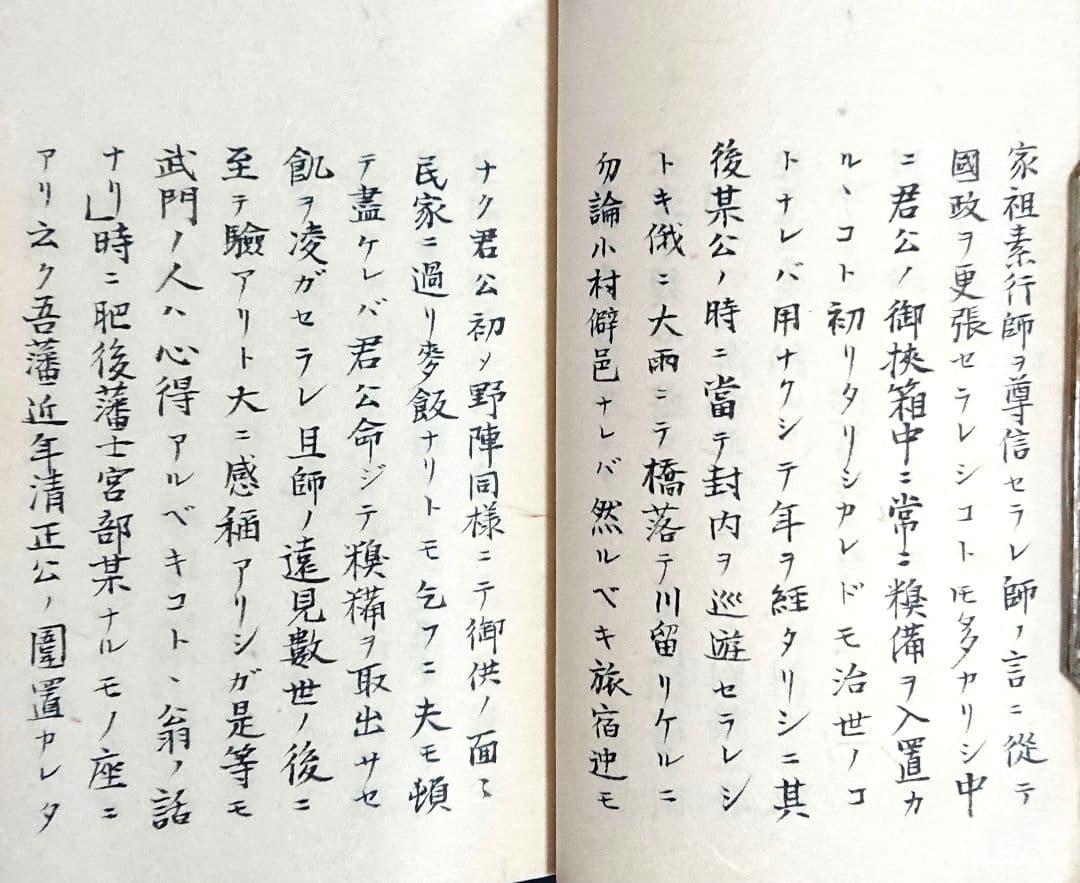 家祖素行師ヲ尊信セラレ師ノ言ニ從テ
國政ヲ更張セラレシコトモ多カリシ中
ニ君公ノ御挾箱中ニ常ニ糗備ヲ入置カ
ルヽコト初リタリシカレドモ治世ノコ
トナレバ用ナクシテ年ヲ経タリシニ其
後某公ノ時ニ當テ封内ヲ巡遊セラレシ
トキ俄ニ大雨ニテ橋落テ川留リケルニ
勿論小村僻邑ナレバ然ルベキ旅宿迚モ
ナク君公初メ野陣同様ニテ御供ノ面〻
民家ニ過リ麥飯ナリトモ乞フニ夫モ頓
テ盡ケレバ君公命ジテ糗糒ヲ取出サセ
飢ヲ凌ガセラレ且師ノ遠見數世ノ後ニ
至テ驗アリト大ニ感稱アリシガ是等モ
武門ノ人ハ心得アルベキコトヽ翁ノ話
ナリ」時ニ肥後藩士宮部某ナルモノ座ニ
アリ云ク吾藩近年清正公ノ圍置カレタ